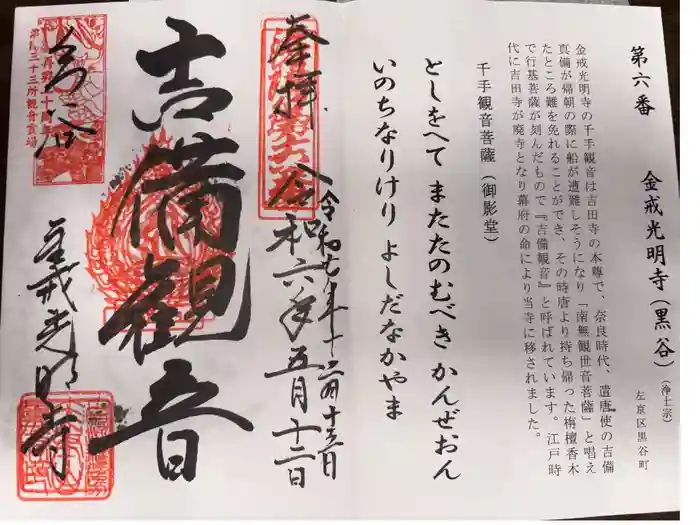 第六番
金戒光明寺（黒谷）
（浄土宗）
左京区黒谷町
金戒光明寺の千手観音は吉田寺の本尊で、奈良時代、遣唐使の吉備
真備が帰朝の際に船が遭難しそうになり『南無観世音菩薩』と唱え
たところ難を免れることができ、その時唐より持ち帰った栴檀香木
で行基菩薩が刻んだもので『吉備観音』と呼ばれています。江戸時
代に吉田寺が廃寺となり幕府の命により当寺に移されました。
千手観音菩薩（御影堂）
としをへて またたのむべき かんぜおん
いのちなりけり よしだなかやま
奉拝
令和六年五月十二日
吉備観音
金戒光明寺